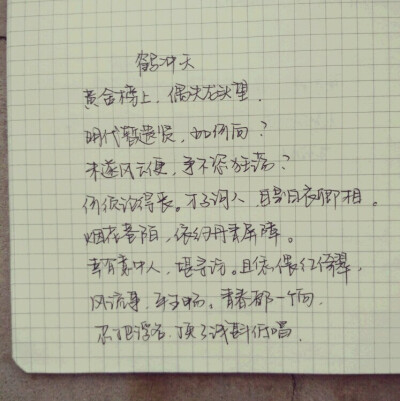 鹤冲天
黄金榜上，偶失龙头望．
明代暂遗贤，如何向？
未遂风云便，争不恣狂荡？
何须论得丧。才子词人 自是白衣卿相．
烟花巷陌，依约丹青屏障。
幸有意中人，堪寻访。且恁偎红倚翠，
风流事，平生畅。青春都一饷．
忍把浮名．换了浅斟低唱．